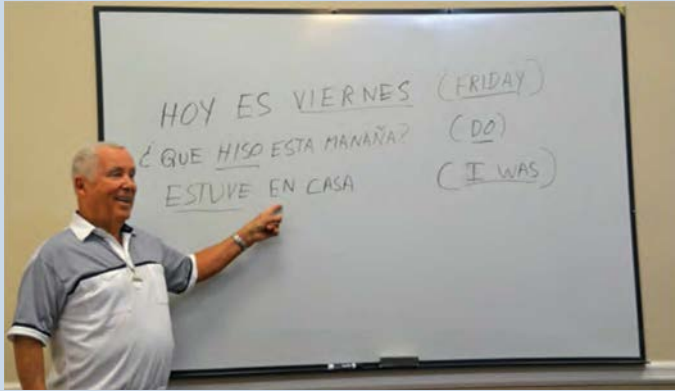 HOY ES VIERNES (FRIDAY)
¿QUE HISO ESTA MANAÑA? (DO)
ESTUVE EN CASA (I WAS)